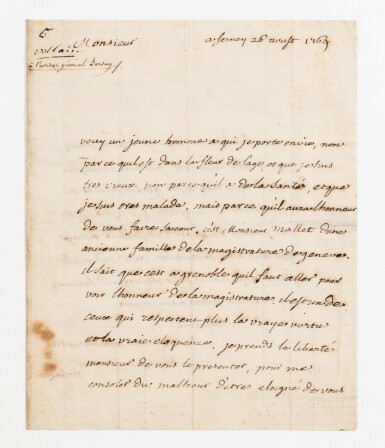 6
Monsieur
a ferney 26 auust 1769
voicy un jeune homme a qui je porte envie, non
parce qu'il est dans la fleur de lage, et que je suis
tres vieux, non parce qu'il a de la santé, et que
je suis tres malade, mais parce qu'il aura lhonneur
de vous faire sa cour. cest Monsieur mallet dune
ancienne famille de la magistrature de geneve.
il sait que cest a grenoble qu'il faut aller pour
voir lhonneur de la magistrature. il est un de
ceux qui respectent plus la vraye vertu
et la vraie eloquence. je prends la liberté
monsieur de vous le presenter, pour me
consoler du malheur d'etre eloigné de vous